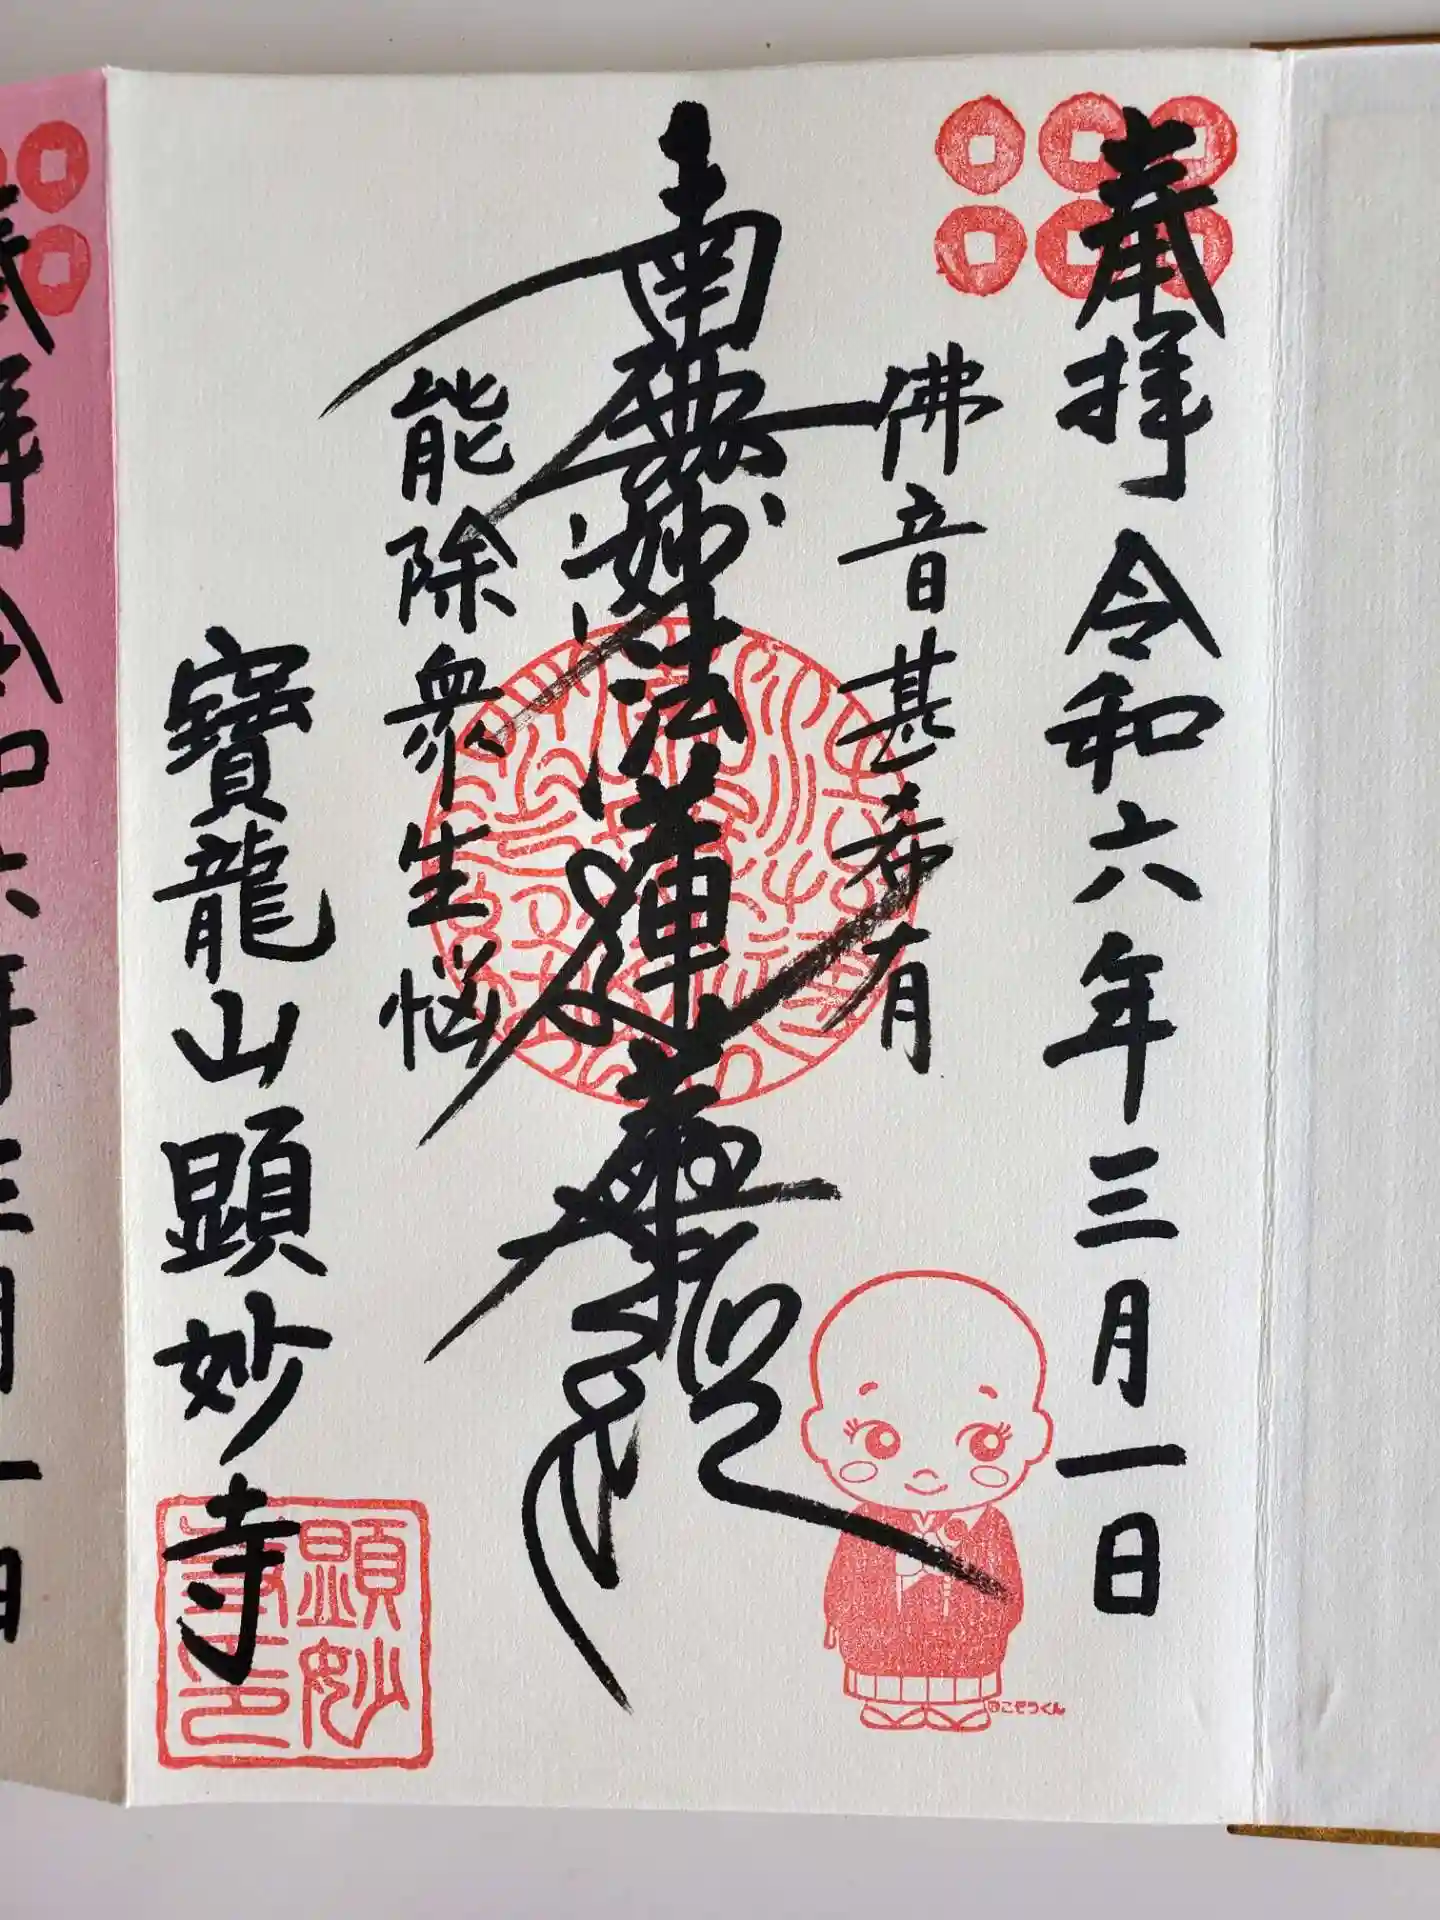 奉拝 令和六年三月一日
佛音甚希有
南無妙法蓮華経
能除衆生悩
寶龍山顕妙寺
顕妙
寺印
こぞうくん
奉拝 令和六年三月一日